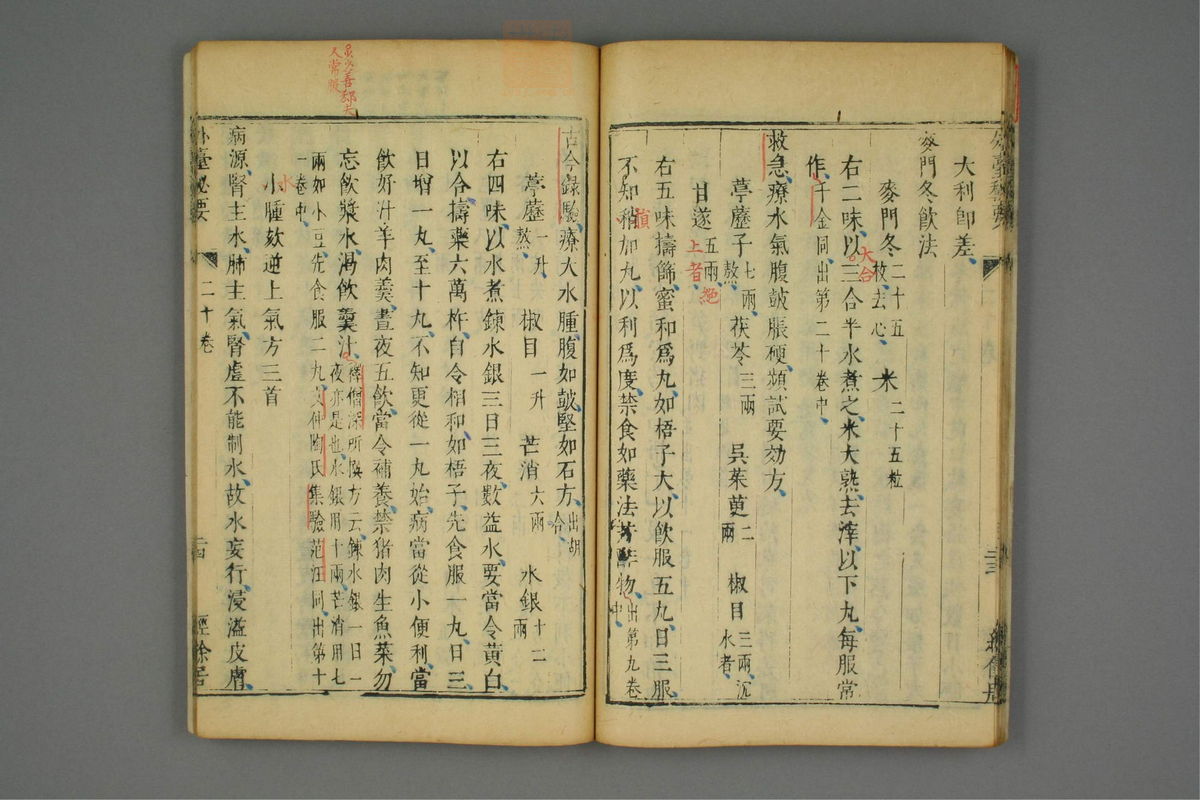 大利卽差
麥門冬飲法
麥門冬二十五枚去心 米二十五粒
右二味以三合半水煮之米大熟去滓以下丸每服常
作千金同出第二十卷中
大台
救急療水氣腹皷脹硬頻試要効方
葶藶子七兩熬 茯苓三兩 吳茱萸二兩 椒目三兩沉水者
甘遂五兩
上者絕
右五味擣篩蜜和爲丸如梧子大以飲服五丸日三服
不知稍加丸以利爲度禁食如藥法物出第九卷中
古今録驗療大水腫腹如皷堅如石方出胡洽
葶藶一升熬 椒目一升 芒消六兩 水銀十二兩
右四味以水煮鍊水銀三日三夜數益水要當令黃白
以合擣藥六萬杵自令相和如梧子先食服一丸日三
日增一丸至十丸不知更從一丸始病當從小便利當
飲好汁羊肉羹晝夜五飲當令補養禁猪肉生魚菜勿
忘飲漿水渴飲羹汁禪僧深所撰方云鍊水銀一日一夜亦是也水銀用十兩芒消用七
兩如小豆先食服二丸文仲陶氏集驗范汪同出第十一卷中
水
小腫欬逆上氣方三首
病源腎主水肺主氣腎虛不能制水故水妄行浸溢皮膚
外臺秘要 二十卷 二四 經餘居